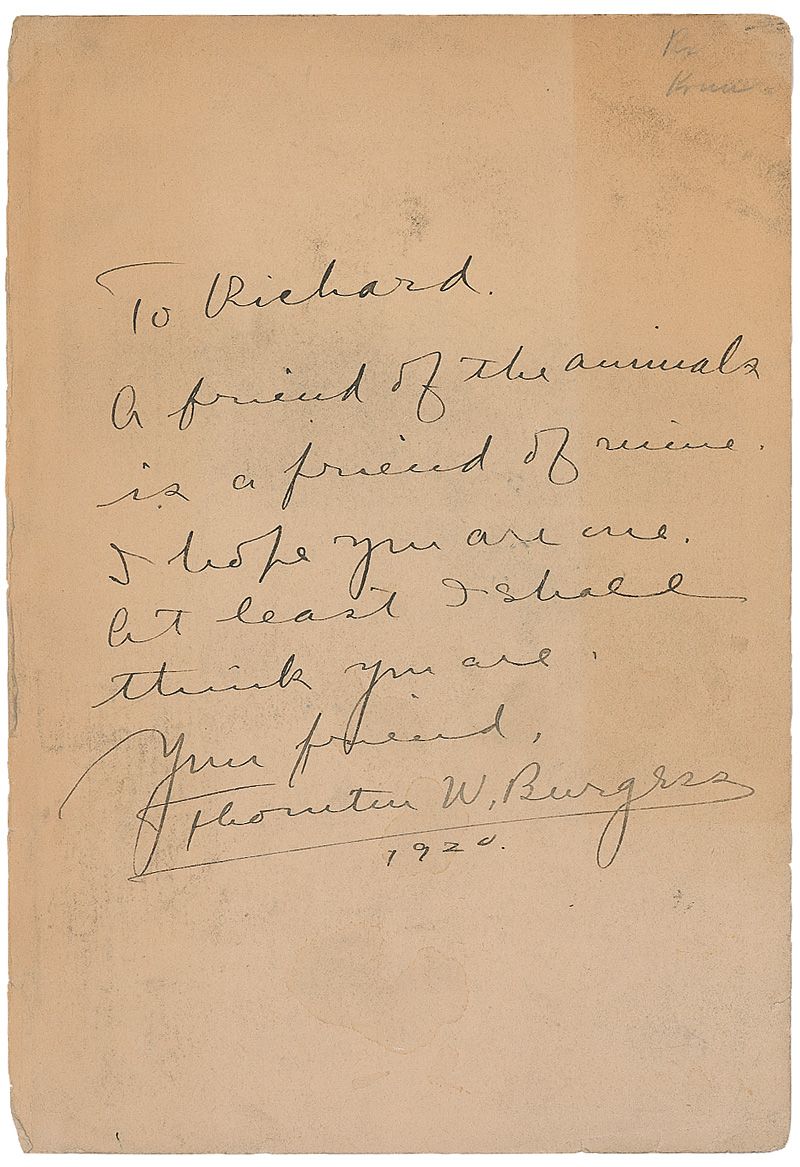 To Richard.
A friend of the animals
is a friend of mine.
I hope you are one.
At least I shall
think you are.
Your friend,
Thornton W. Burgess
1920.